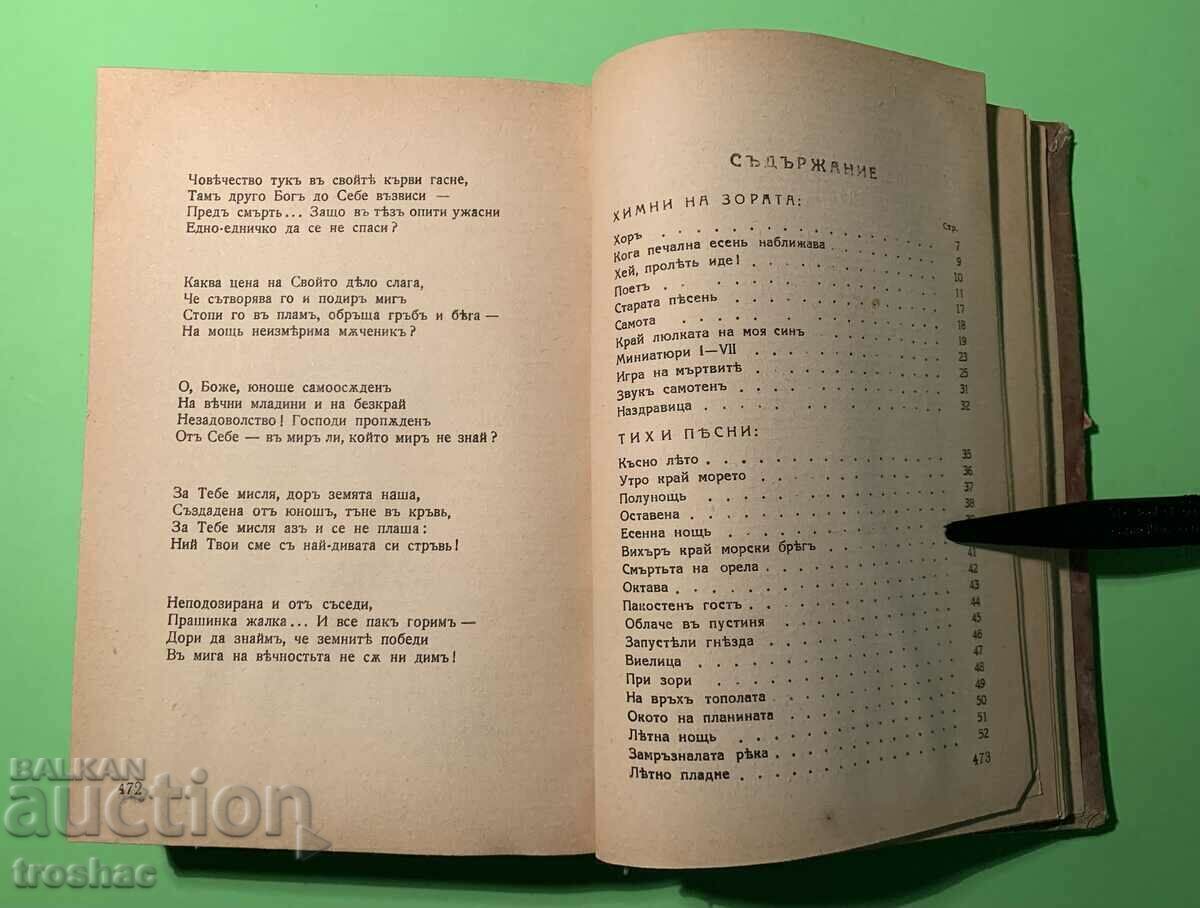 Човѣчество тукъ въ свойтѣ кърви гасне,
Тамъ друго Богъ до Себе възвиси —
Предъ смърть... Защо въ тѣзъ опити ужасни
Едно-едничко да се не спаси?
Каква цена на Свойто дѣло слага,
Че сътворява го и подиръ мигъ
Стопи го въ пламъ, обръща гръбъ и бѣга —
На мощь неизмѣрима мѫченикъ?
О, Боже, юноше самоосѫденъ
На вѣчни младини и на безкрай
Незадоволство! Господи пропѫденъ
Отъ Себе — въ миръ ли, който миръ не знай?
За Тебе мисля, доръ земята наша,
Създадена отъ юношъ, тъне въ кръвь,
За Тебе мисля азъ и се не плаша:
Ний Твои сме съ най-дивата си стръвь!
Неподозирана и отъ съседи,
Прашинка жалка... И все пакъ горимъ —
Дори да знаймъ, че земнитѣ победи
Въ мига на вѣчностьта не сѫ ни димъ!
472
СЪДЪРЖАНИЕ
ХИМНИ НА ЗОРАТА:
Стр.
Хоръ 7
Кога печална есень наближава 9
Хей, пролѣть иде! 10
Поетъ 11
Старата пѣсень 17
Самота 18
Край люлката на моя синъ 19
Миниатюри I—VII 23
Игра на мъртвитѣ 25
Звукъ самотенъ 31
Наздравица 32
ТИХИ ПѢСНИ:
Късно лѣто 35
Утро край морето 36
Полунощь 37
Оставена 38
Есенна нощь
Вихъръ край морски брѣгъ 41
Смъртьта на орела 42
Октава 43
Пакостенъ гость 44
Облаче въ пустиня 45
Запустѣли гнѣзда 46
Виелица 47
При зори 48
На връхъ тополата 49
Окото на планината 50
Лѣтна нощь 51
Замръзналата рѣка 52
Лѣтно пладне
473
BALKAN
auction
troshac